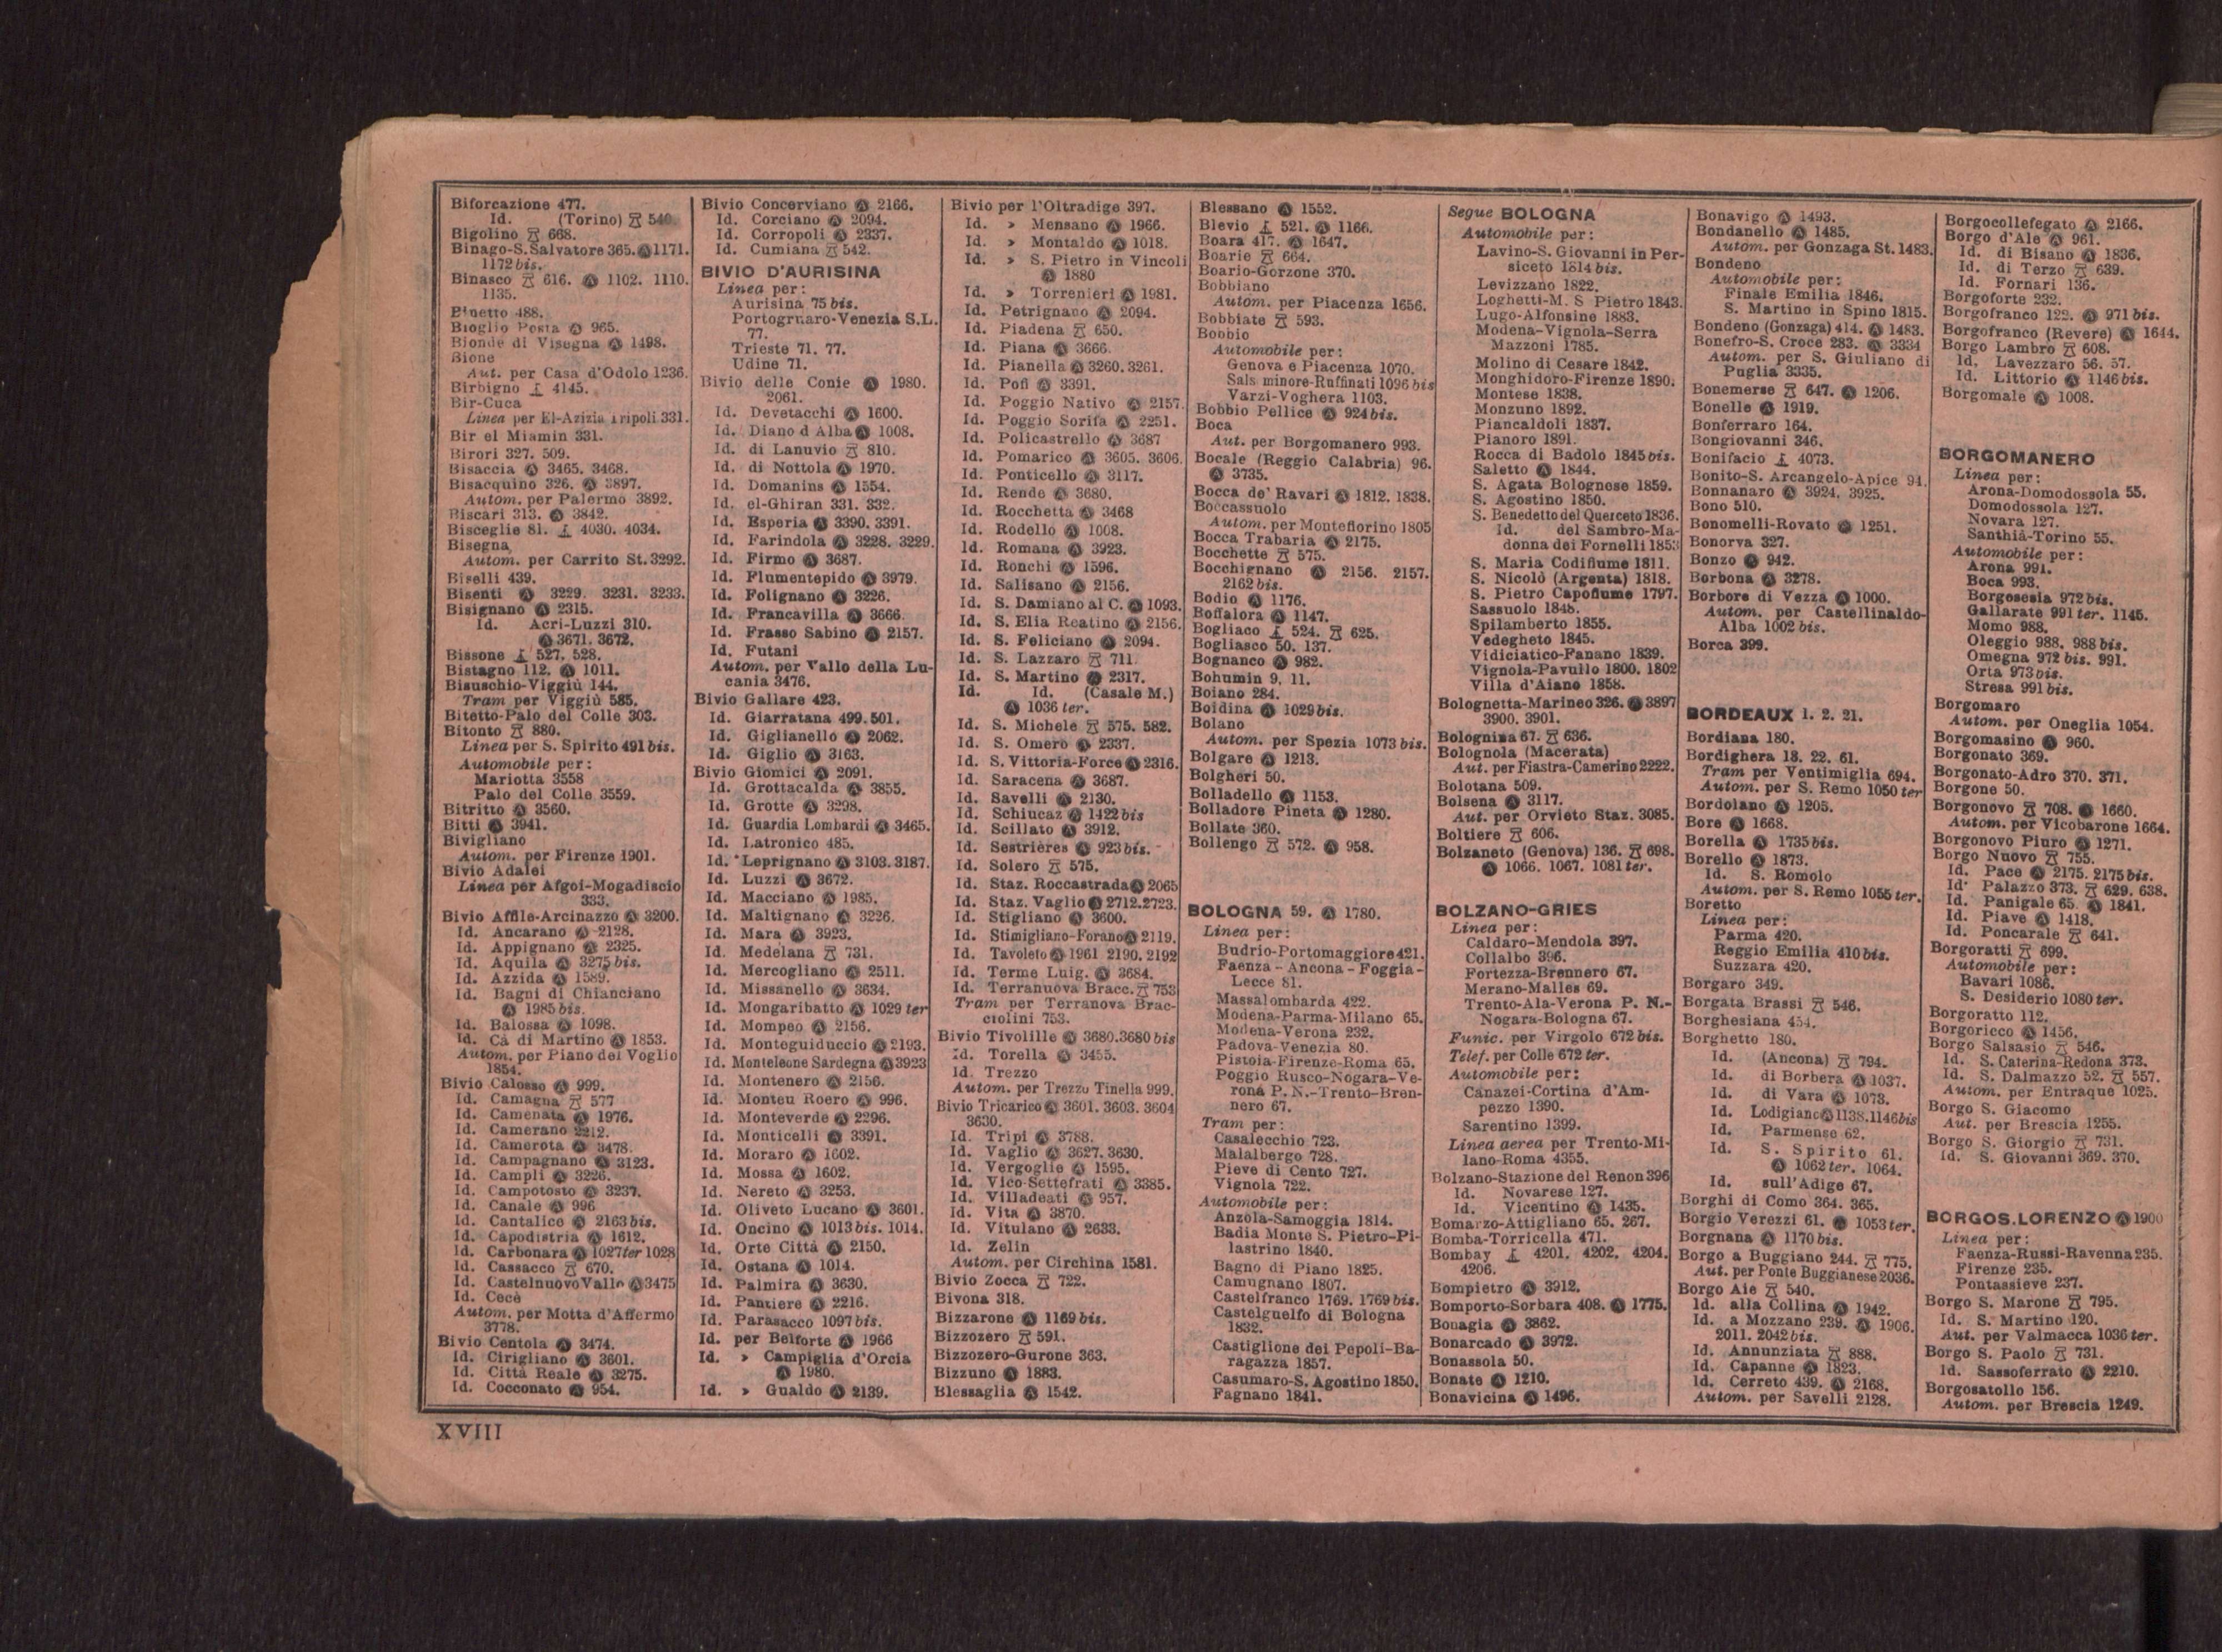 Biforcazione 477.
Id. (Torino) 540.
Bigolino 668.
Binago-S. Salvatore 365. Ⓐ 1171.
1172 bis.
Binasco 616. Ⓐ 1102. 1110.
1135.
Binetto 488.
Bioglio Posta Ⓐ 965.
Bionde di Visegna Ⓐ 1498.
Bione
Aut. per Casa d'Odolo 1236.
Birbigno 4145.
Bir-Cuca
Linea per El-Azizia Tripoli 331.
Bir el Miamin 331.
Birori 327. 509.
Bisaccia Ⓐ 3465. 3468.
Bisacquino 326. Ⓐ 3897.
Autom. per Palermo 3892.
Biscari 313. Ⓐ 3842.
Bisceglie 81. 4030. 4034.
Bisegna
Autom. per Carrito St. 3292.
Biselli 439.
Bisenti Ⓐ 3229. 3231. 3233.
Bisignano Ⓐ 2315.
Id. Acri-Luzzi 310.
Ⓐ 3671. 3672.
Bissone 527. 528.
Bistagno 112. Ⓐ 1011.
Bisuschio-Viggiù 144.
Tram per Viggiù 585.
Bitetto-Palo del Colle 303.
Bitonto 880.
Linea per S. Spirito 491 bis.
Automobile per:
Mariotta 3558
Palo del Colle 3559.
Bitritto Ⓐ 3560.
Bitti Ⓐ 3941.
Bivigliano
Autom. per Firenze 1901.
Bivio Adalei
Linea per Afgoi-Mogadiscio
333.
Bivio Affile-Arcinazzo Ⓐ 3200.
Id. Ancarano Ⓐ 2128.
Id. Appignano Ⓐ 2325.
Id. Aquila Ⓐ 3275 bis.
Id. Azzida Ⓐ 1589.
Id. Bagni di Chianciano
Ⓐ 1985 bis.
Id. Balossa Ⓐ 1098.
Id. Cà di Martino Ⓐ 1853.
Autom. per Piano del Voglio
1854.
Bivio Calosso Ⓐ 999.
Id. Camagna 577
Id. Camenata Ⓐ 1976.
Id. Camerano 2212.
Id. Camerota Ⓐ 3478.
Id. Campagnano Ⓐ 3123.
Id. Campli Ⓐ 3226.
Id. Campotosto Ⓐ 3237.
Id. Canale Ⓐ 996
Id. Cantalice Ⓐ 2163 bis.
Id. Capodistria Ⓐ 1612.
Id. Carbonara Ⓐ 1027 ter 1028
Id. Cassacco 670.
Id. Castelnuovo Vallo Ⓐ 3475
Id. Cecè
Autom. per Motta d'Affermo
3778.
Bivio Centola Ⓐ 3474.
Id. Cirigliano Ⓐ 3601.
Id. Città Reale Ⓐ 3275.
Id. Cocconato Ⓐ 954.
Bivio Concerviano Ⓐ 2166.
Id. Corciano Ⓐ 2094.
Id. Corropoli Ⓐ 2337.
Id. Cumiana 542.
BIVIO D'AURISINA
Linea per:
Aurisina 75 bis.
Portogruaro-Venezia S.L.
77.
Trieste 71. 77.
Udine 71.
Bivio delle Conie Ⓐ 1980.
2061.
Id. Devetacchi Ⓐ 1600.
Id. Diano d Alba Ⓐ 1008.
Id. di Lanuvio 810.
Id. di Nottola Ⓐ 1970.
Id. Domanins Ⓐ 1554.
Id. el-Ghiran 331. 332.
Id. Esperia Ⓐ 3390. 3391.
Id. Farindola Ⓐ 3228. 3229.
Id. Firmo Ⓐ 3687.
Id. Flumentepido Ⓐ 3979.
Id. Folignano Ⓐ 3226.
Id. Francavilla Ⓐ 3666.
Id. Frasso Sabino Ⓐ 2157.
Id. Futani
Autom. per Vallo della Lu-
cania 3476.
Bivio Gallare 423.
Id. Giarratana 499. 501.
Id. Giglianello Ⓐ 2062.
Id. Giglio Ⓐ 3163.
Bivio Giomici Ⓐ 2091.
Id. Grottacalda Ⓐ 3855.
Id. Grotte Ⓐ 3298.
Id. Guardia Lombardi Ⓐ 3465.
Id. Latronico 485.
Id. Leprignano Ⓐ 3103. 3187.
Id. Luzzi Ⓐ 3672.
Id. Macciano Ⓐ 1985.
Id. Maltignano Ⓐ 3226.
Id. Mara Ⓐ 3923.
Id. Medelana 731.
Id. Mercogliano Ⓐ 2511.
Id. Missanello Ⓐ 3634.
Id. Mongaribatto Ⓐ 1029 ter
Id. Mompeo Ⓐ 2156.
Id. Monteguiduccio Ⓐ 2193.
Id. Monteleone Sardegna Ⓐ 3923
Id. Montenero Ⓐ 2156.
Id. Monteu Roero Ⓐ 996.
Id. Monteverde Ⓐ 2296.
Id. Monticelli Ⓐ 3391.
Id. Moraro Ⓐ 1602.
Id. Mossa Ⓐ 1602.
Id. Nereto Ⓐ 3253.
Id. Oliveto Lucano Ⓐ 3601.
Id. Oncino Ⓐ 1013 bis. 1014.
Id. Orte Città Ⓐ 2150.
Id. Ostana Ⓐ 1014.
Id. Palmira Ⓐ 3630.
Id. Pantiere Ⓐ 2216.
Id. Parasacco 1097 bis.
Id. per Belforte Ⓐ 1966
Id. » Campiglia d'Orcia
Ⓐ 1980.
Id. » Gualdo Ⓐ 2139.
Bivio per l'Oltradige 397.
Id. » Mensano Ⓐ 1966.
Id. » Montaldo Ⓐ 1018.
Id. » S. Pietro in Vincoli
Ⓐ 1880
Id. » Torrenieri Ⓐ 1981.
Id. Petrignano Ⓐ 2094.
Id. Piadena 650.
Id. Piana Ⓐ 3666.
Id. Pianella Ⓐ 3260. 3261.
Id. Pofi Ⓐ 3391.
Id. Poggio Nativo Ⓐ 2157.
Id. Poggio Sorifa Ⓐ 2251.
Id. Policastrello Ⓐ 3687
Id. Pomarico Ⓐ 3605. 3606.
Id. Ponticello Ⓐ 3117.
Id. Rende Ⓐ 3680.
Id. Rocchetta Ⓐ 3468
Id. Rodello Ⓐ 1008.
Id. Romana Ⓐ 3923.
Id. Ronchi Ⓐ 1596.
Id. Salisano Ⓐ 2156.
Id. S. Damiano al C. Ⓐ 1093.
Id. S. Elia Reatino Ⓐ 2156.
Id. S. Feliciano Ⓐ 2094.
Id. S. Lazzaro 711.
Id. S. Martino Ⓐ 2317.
Id. Id. (Casale M.)
Ⓐ 1036 ter.
Id. S. Michele 575. 582.
Id. S. Omero Ⓐ 2337.
Id. S. Vittoria-Force Ⓐ 2316.
Id. Saracena Ⓐ 3687.
Id. Savelli Ⓐ 2130.
Id. Schiucaz Ⓐ 1422 bis
Id. Scillato Ⓐ 3912.
Id. Sestrières Ⓐ 923 bis.
Id. Solero 575.
Id. Staz. Roccastrada Ⓐ 2065
Id. Staz. Vaglio Ⓐ 2712. 2723.
Id. Stigliano Ⓐ 3600.
Id. Stimigliano-Forano Ⓐ 2119.
Id. Tavoleto Ⓐ 1961 2190. 2192
Id. Terme Luig. Ⓐ 3684.
Id. Terranuova Bracc. 753
Tram per Terranova Brac-
ciolini 753.
Bivio Tivolille Ⓐ 3680. 3680 bis
Id. Torella Ⓐ 3455.
Id. Trezzo
Autom. per Trezzo Tinella 999.
Bivio Tricarico Ⓐ 3601. 3603. 3604
3630.
Id. Tripi Ⓐ 3788.
Id. Vaglio Ⓐ 3627. 3630.
Id. Vergoglie Ⓐ 1595.
Id. Vico-Settefrati Ⓐ 3385.
Id. Villadeati Ⓐ 957.
Id. Vita Ⓐ 3870.
Id. Vitulano Ⓐ 2633.
Id. Zelin
Autom. per Circhina 1581.
Bivio Zocca 722.
Bivona 318.
Bizzarone Ⓐ 1169 bis.
Bizzozero 591.
Bizzozero-Gurone 363.
Bizzuno Ⓐ 1883.
Blessaglia Ⓐ 1542.
Blessano Ⓐ 1552.
Blevio 521. Ⓐ 1166.
Boara 417. Ⓐ 1647.
Boarie 664.
Boario-Gorzone 370.
Bobbiano
Autom. per Piacenza 1656.
Bobbiate 593.
Bobbio
Automobile per:
Genova e Piacenza 1070.
Sals minore-Ruffinati 1096 bis
Varzi-Voghera 1103.
Bobbio Pellice Ⓐ 924 bis.
Boca
Aut. per Borgomanero 993.
Bocale (Reggio Calabria) 96.
Ⓐ 3735.
Bocca de' Ravari Ⓐ 1812. 1838.
Boccassuolo
Autom. per Montefiorino 1805
Bocca Trabaria Ⓐ 2175.
Bocchette 575.
Bocchignano Ⓐ 2156. 2157.
2162 bis.
Bodio Ⓐ 1176.
Boffalora Ⓐ 1147.
Bogliaco 524. 625.
Bogliasco 50. 137.
Bognanco Ⓐ 982.
Bohumin 9. 11.
Boiano 284.
Boidina Ⓐ 1029 bis.
Bolano
Autom. per Spezia 1073 bis.
Bolgare Ⓐ 1213.
Bolgheri 50.
Bolladello Ⓐ 1153.
Bolladore Pineta Ⓐ 1280.
Bollate 360.
Bollengo 572. Ⓐ 958.
BOLOGNA 59. Ⓐ 1780.
Linea per:
Budrio-Portomaggiore 421.
Faenza-Ancona-Foggia-
Lecce 81.
Massalombarda 422.
Modena-Parma-Milano 65.
Modena-Verona 232.
Padova-Venezia 80.
Pistoia-Firenze-Roma 65.
Poggio Rusco-Nogara-Ve-
rona P. N.-Trento-Bren-
nero 67.
Tram per:
Casalecchio 723.
Malalbergo 728.
Pieve di Cento 727.
Vignola 722.
Automobile per:
Anzola-Samoggia 1814.
Badia Monte S. Pietro-Pi-
lastrino 1840.
Bagno di Piano 1825.
Camugnano 1807.
Castelfranco 1769. 1769 bis.
Castelguelfo di Bologna
1832.
Castiglione dei Pepoli-Ba-
ragazza 1857.
Casumaro-S. Agostino 1850.
Fagnano 1841.
Segue BOLOGNA
Automobile per:
Lavino-S. Giovanni in Per-
siceto 1814 bis.
Levizzano 1822.
Loghetti-M. S Pietro 1843.
Lugo-Alfonsine 1883.
Modena-Vignola-Serra
Mazzoni 1785.
Molino di Cesare 1842.
Monghidoro-Firenze 1890.
Montese 1838.
Monzuno 1892.
Piancaldoli 1837.
Pianoro 1891.
Rocca di Badolo 1845 bis.
Saletto Ⓐ 1844.
S. Agata Bolognese 1859.
S. Agostino 1850.
S. Benedetto del Querceto 1836.
Id. del Sambro-Ma-
donna dei Fornelli 1853
S. Maria Codifiume 1811.
S. Nicolò (Argenta) 1818.
S. Pietro Capofiume 1797.
Sassuolo 1848.
Spilamberto 1855.
Vedegheto 1845.
Vidiciatico-Fanano 1839.
Vignola-Pavullo 1800. 1802
Villa d'Aiano 1858.
Bolognetta-Marineo 326. Ⓐ 3897
3900. 3901.
Bolognina 67. 636.
Bolognola (Macerata)
Aut. per Fiastra-Camerino 2222.
Bolotana 509.
Bolsena Ⓐ 3117.
Aut. per Orvieto Staz. 3085.
Boltiere 606.
Bolzaneto (Genova) 136. 698.
Ⓐ 1066. 1067. 1081 ter.
BOLZANO-GRIES
Linea per:
Caldaro-Mendola 397.
Collalbo 396.
Fortezza-Brennero 67.
Merano-Malles 69.
Trento-Ala-Verona P. N.-
Nogara-Bologna 67.
Funic. per Virgolo 672 bis.
Telef. per Colle 672 ter.
Automobile per:
Canazei-Cortina d'Am-
pezzo 1390.
Sarentino 1399.
Linea aerea per Trento-Mi-
lano-Roma 4355.
Bolzano-Stazione del Renon 396
Id. Novarese 127.
Id. Vicentino Ⓐ 1435.
Bomarzo-Attigliano 65. 267.
Bomba-Torricella 471.
Bombay 4201. 4202. 4204.
4206.
Bompietro Ⓐ 3912.
Bomporto-Sorbara 408. Ⓐ 1775.
Bonagia Ⓐ 3862.
Bonarcado Ⓐ 3972.
Bonassola 50.
Bonate Ⓐ 1210.
Bonavicina Ⓐ 1496.
Bonavigo Ⓐ 1493.
Bondanello Ⓐ 1485.
Autom. per Gonzaga St. 1483.
Bondeno
Automobile per:
Finale Emilia 1846.
S. Martino in Spino 1815.
Bondeno (Gonzaga) 414. Ⓐ 1483.
Bonefro-S. Croce 283. Ⓐ 3334
Autom. per S. Giuliano di
Puglia 3335.
Bonemerse 647. Ⓐ 1206.
Bonelle Ⓐ 1919.
Bonferraro 164.
Bongiovanni 346.
Bonifacio 4073.
Bonito-S. Arcangelo-Apice 91.
Bonnanaro Ⓐ 3924. 3925.
Bono 510.
Bonomelli-Rovato Ⓐ 1251.
Bonorva 327.
Bonzo Ⓐ 942.
Borbona Ⓐ 3278.
Borbore di Vezza Ⓐ 1000.
Autom. per Castellinaldo-
Alba 1002 bis.
Borca 399.
BORDEAUX 1. 2. 21.
Bordiana 180.
Bordighera 18. 22. 61.
Tram per Ventimiglia 694.
Autom. per S. Remo 1050 ter
Bordolano Ⓐ 1205.
Bore Ⓐ 1668.
Borella Ⓐ 1735 bis.
Borello Ⓐ 1873.
Id. S. Romolo
Autom. per S. Remo 1055 ter.
Boretto
Linea per:
Parma 420.
Reggio Emilia 410 bis.
Suzzara 420.
Borgaro 349.
Borgata Brassi 546.
Borghesiana 454.
Borghetto 180.
Id. (Ancona) 794.
Id. di Borbera Ⓐ 1037.
Id. di Vara Ⓐ 1073.
Id. Lodigiano Ⓐ 1138. 1146 bis
Id. Parmense 62.
Id. S. Spirito 61.
Ⓐ 1062 ter. 1064.
Id. sull'Adige 67.
Borghi di Como 364. 365.
Borgio Verezzi 61. Ⓐ 1053 ter.
Borgnana Ⓐ 1170 bis.
Borgo a Buggiano 244. 775.
Aut. per Ponte Buggianese 2036.
Borgo Aie 540.
Id. alla Collina Ⓐ 1942.
Id. a Mozzano 239. Ⓐ 1906.
2011. 2042 bis.
Id. Annunziata 888.
Id. Capanne Ⓐ 1823.
Id. Cerreto 439. Ⓐ 2168.
Autom. per Savelli 2128.
Borgocollefegato Ⓐ 2166.
Borgo d'Ale Ⓐ 961.
Id. di Bisano Ⓐ 1836.
Id. di Terzo 639.
Id. Fornari 136.
Borgoforte 232.
Borgofranco 122. Ⓐ 971 bis.
Borgofranco (Revere) Ⓐ 1644.
Borgo Lambro 608.
Id. Lavezzaro 56. 57.
Id. Littorio Ⓐ 1146 bis.
Borgomale Ⓐ 1008.
BORGOMANERO
Linea per:
Arona-Domodossola 55.
Domodossola 127.
Novara 127.
Santhià-Torino 55.
Automobile per:
Arona 991.
Boca 993.
Borgosesia 972 bis.
Gallarate 991 ter. 1145.
Momo 988.
Oleggio 988. 988 bis.
Omegna 972 bis. 991.
Orta 973 bis.
Stresa 991 bis.
Borgomaro
Autom. per Oneglia 1054.
Borgomasino Ⓐ 960.
Borgonato 369.
Borgonato-Adro 370. 371.
Borgone 50.
Borgonovo 708. Ⓐ 1660.
Autom. per Vicobarone 1664.
Borgonovo Piuro Ⓐ 1271.
Borgo Nuovo 755.
Id. Pace Ⓐ 2175. 2175 bis.
Id. Palazzo 373. 629. 638.
Id. Panigale 65. Ⓐ 1841.
Id. Piave Ⓐ 1418.
Id. Poncarale 641.
Borgoratti 699.
Automobile per:
Bavari 1086.
S. Desiderio 1080 ter.
Borgoratto 112.
Borgoricco Ⓐ 1456.
Borgo Salsasio 546.
Id. S. Caterina-Redona 373.
Id. S. Dalmazzo 52. 557.
Autom. per Entraque 1025.
Borgo S. Giacomo
Aut. per Brescia 1255.
Borgo S. Giorgio 731.
Id. S. Giovanni 369. 370.
BORGO S. LORENZO Ⓐ 1900
Linea per:
Faenza-Russi-Ravenna 235.
Firenze 235.
Pontassieve 237.
Borgo S. Marone 795.
Id. S. Martino 120.
Aut. per Valmacca 1036 ter.
Borgo S. Paolo 731.
Id. Sassoferrato Ⓐ 2210.
Borgosatollo 156.
Autom. per Brescia 1249.
XVIII